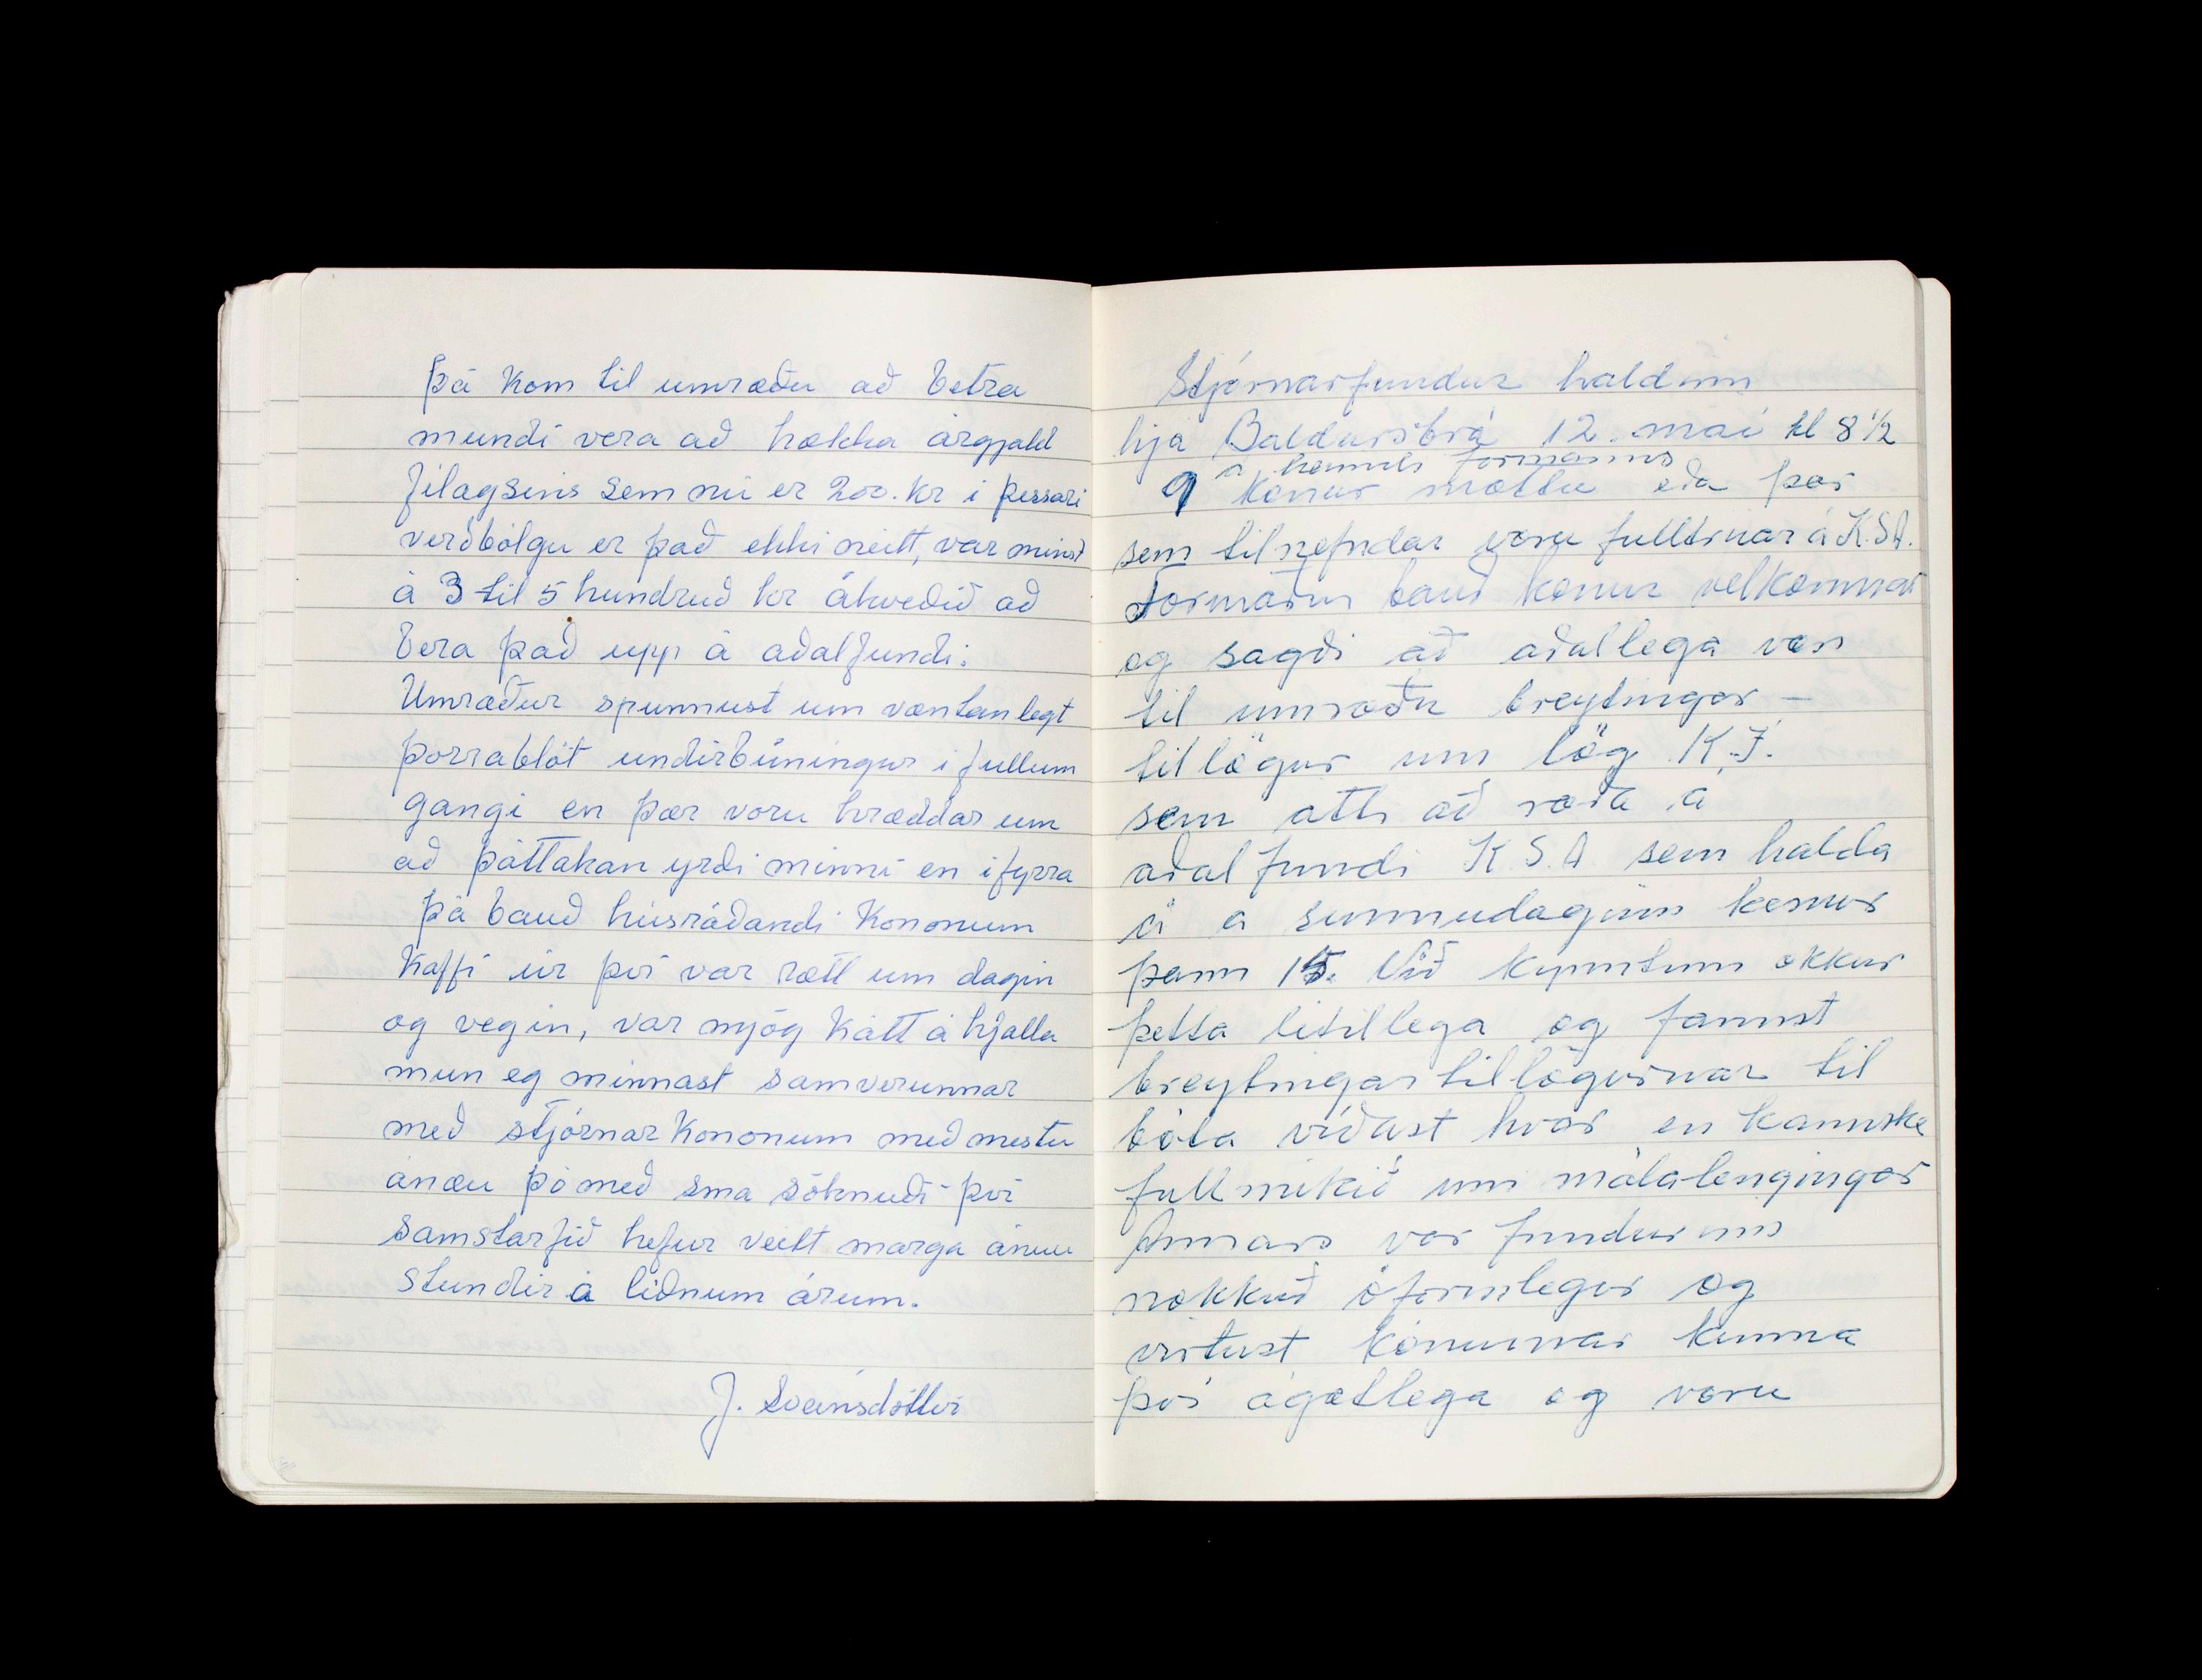 þá kom til umræðu að betra
mundi vera að hækka árgjald
félagsins sem nú er 200. kr i þessari
verðbólgu er það ekki neitt, var minst
á 3 til 5 hundruð kr ákveðið að
bera það upp á aðalfundi.
Umræður spunnust um væntanlegt
þorrablót undirbúningur i fullum
gangi en þær voru hræddar um
að þátttakan yrði minni en i fyrra
þá bauð húsráðandi Kononum
Kaffi úr því var rætt um dagin
og vegin, var mjög kátt á hjalla
mun eg minnast samverunnar
með stjórnar Kononum með mestu
ánæu þó með sma söknuði því
samstarfið hefur veitt marga ánæu
stundir á liðnum árum.
J. Sveinsdóttir
Stjórnarfundur haldinn
hja Baldursbrá 12. mai kl 8 1/2
á heimili formanns
9 konur mættu eða þær
sem tilnefndar voru fulltruar á K.S.A.
Formaður bauð konur velkomnar
og sagði að aðallega væri
til umræðu breytingar –
tillögur um lög K.Í.
sem ætti að ræða á
aðalfundi K.S.A sem halda
á a sunnudaginn kemur
þann 15. Við kynntum okkur
þetta litillega og fannst
breytingartillögurnar til
bóta víðast hvar en kannske
full mikið um málalengingar
Annars var fundurinn
nokkuð óformlegur og
virtust konurnar kunna
því ágætlega og voru